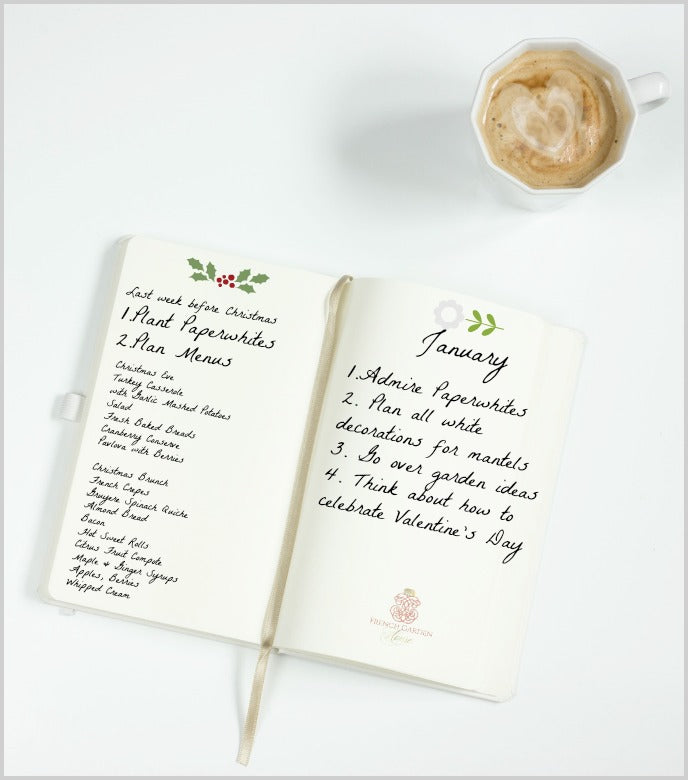 Last week before Christmas
1.Plant Paperwhites
2.Plan Menus
Christmas Eve
Turkey Casserole
with Garlic Mashed Potatoes
Salad
Fresh Baked Breads
Cranberry Conserve
Pavlova with Berries
Christmas Brunch
French Crepes
Gruyere Spinach Quiche
Almond Bread
Bacon
Hot Sweet Rolls
Citrus Fruit Compote
Maple & Ginger Syrups
Apples, Berries
Whipped Cream
January
1.Admire Paperwhites
2. Plan all white
decorations for mantels
3. Go over garden ideas
4. Think about how to
celebrate Valentine's Day
FRENCH GARDEN
House